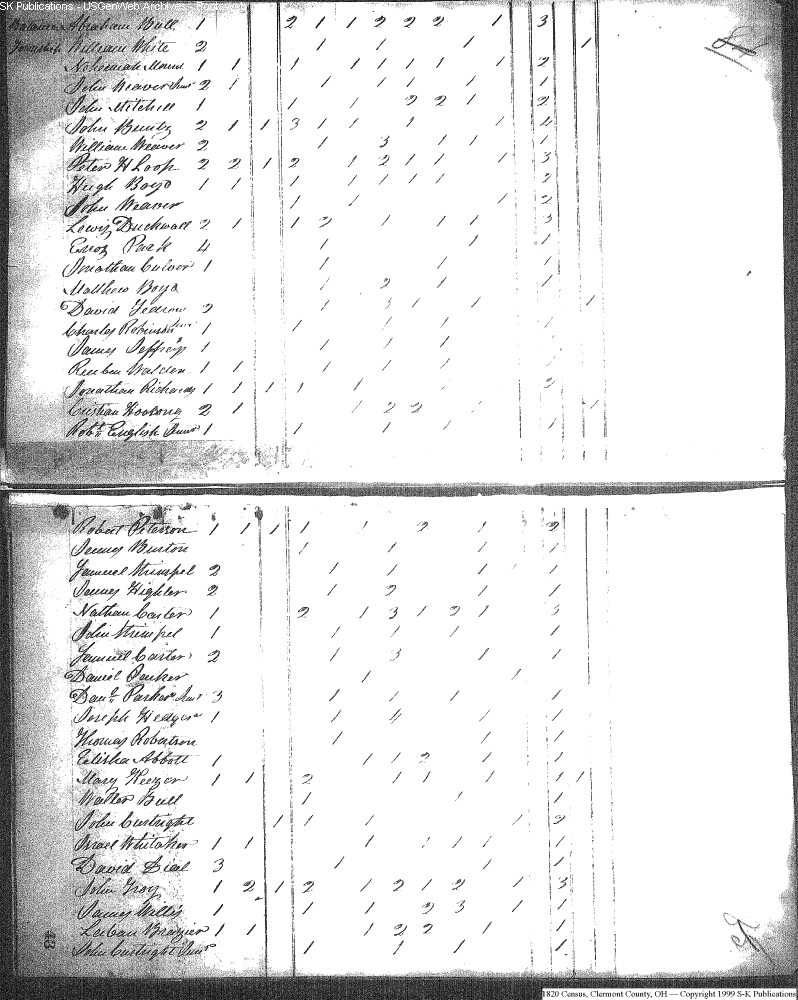 SK Publications - USGenWeb Archives - Rootsweb
Abraham Bull 1 2 1 1 2 2 2 1 3
Township William White 2 1 1 1 1
Nehemiah 1 1 1 1 1 1 1 2
John Weaver Junr 2 1 1 1 1 1 1
John Mitchell 1 1 1 2 2 1 2
John Bunty 2 1 1 3 1 1 1 1 4
William Weaver 2 1 3 1 1 1
Peter H Loop 2 2 1 2 1 2 1 1 1 3
Hugh Boyd 1 1 1 1 1 1 1 2
John Weaver 1 1 1 2
Lewis Duckwall 2 1 1 2 1 1 1 3
Park 4 1 1 1
Jonathan Culver 1 1 1 1
Matthew Boyd 1 2 1 1
David 2 1 3 1 1 1
Charles Robinson 1 1 1 1 1
James Jeffrys 1 1 1 1 1
Reuben Walden 1 1 1 1 1 1 1
Jonathan Richards 1 1 1 1 1 1 1 1 2
2 1 1 2 2 1 1
Robt English Junr 1 1 1 1 1
Robert Peterson 1 1 1 1 1 2 1 2
James Burton 1 1 1 1
Samuel Strimpel 2 1 1 1 1
James Highler 2 1 2 1 1
Nathan Carter 1 2 1 3 1 2 1 3
John Strimpel 1 1 1 1 1
Samuel Carter 2 1 3 1 1
Daniel Parker 1 1
Danl Parker Junr 3 1 1 1 1 1
Joseph Hedger 1 1 4 1 1
Thomas Robertson 1 1 1
Elisha Abbott 1 1 1 2 1 1
Mary Keezer 1 1 2 1 1 1 1 1
Walter Bull 1 1 1
John Curtright 1 1 1 1 2
Israel Whitaker 1 1 1 1 1 1 1
David Dial 3 1 1 1
John Troy 1 2 1 2 1 2 1 2 1 3
James Willis 1 1 1 2 3 1 1
Laban Brazier 1 1 1 2 2 1 1
John Curtright Junr 1 1 1 1
43
1820 Census, Clermont County, OH — Copyright 1999 S-K Publications